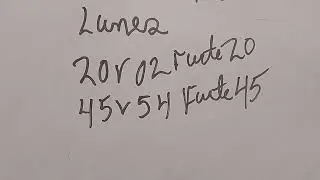 Lunes
20 v 02 Fuete 20
45 v 54 Fuete 45